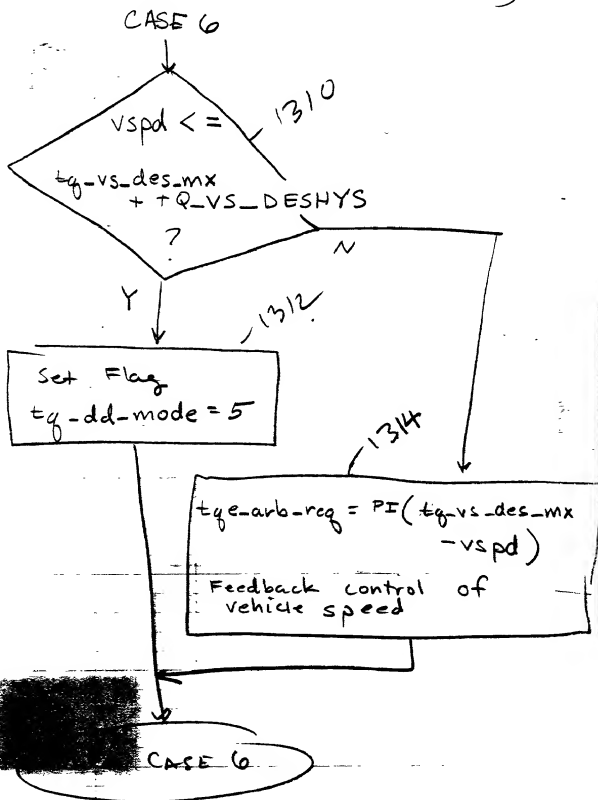 CASE 6
1310
vspd <=
tq_vs_des_mx
+ TQ_VS_DESHYS
?
N
Y
1312
Set Flag
tq_dd_mode = 5
1314
tqe_arb_req = PI(tq_vs_des_mx
-vspd)
Feedback control of
vehicle speed
CASE 6